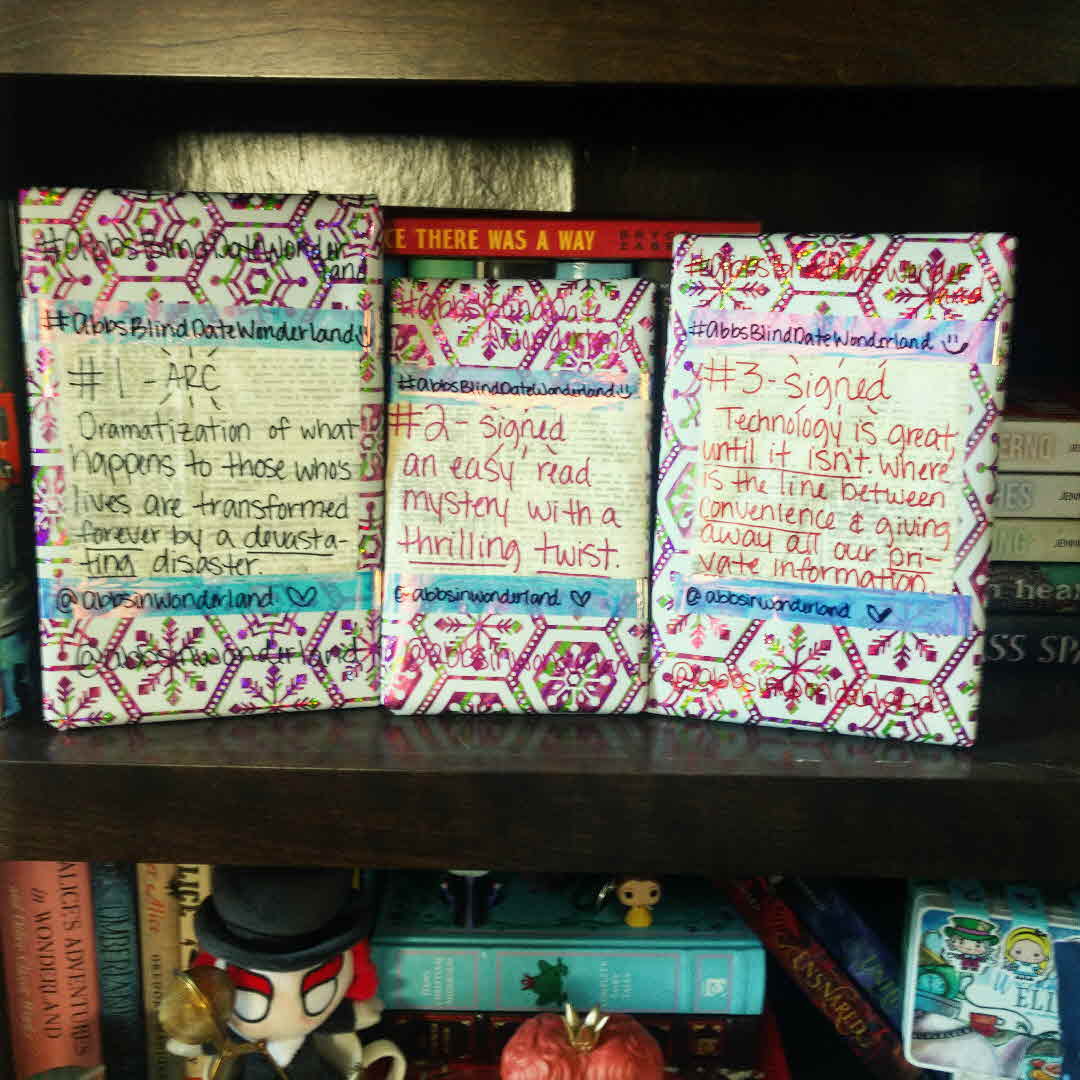 #AbbsBlindDateWonder
land
#AbbsBlindDateWonderland
#1 - ARC
Dramatization of what
happens to those who's
lives are transformed
forever by a devasta-
ting disaster.
@abbsinwonderland
@abbsinwonderland
CE THERE WAS A WAY
#abbsBlindDate
Wonderland
#AbbsBlindDateWonderland
#2 - signed
an easy read
mystery with a
thrilling twist.
@abbsinwonderland
@abbsinwonderland
#abbsBlindDateWonder
land
#AbbsBlindDateWonderland
#3 - signed
Technology is great,
until it isn't. Where
is the line between
convenience & giving
away all our pri-
vate information.
@abbsinwonderland
@abbsinwonderland
ERNO
JENN
JENN
JENN
hear
SS SPA
ALICE'S ADVENTURES
in WONDERLAND
TIMBERLAND
ALICE
HANS
CHRISTIAN
ANDERSEN
COMPLETE
FAIRY
TALES
ENSNARED
ELI